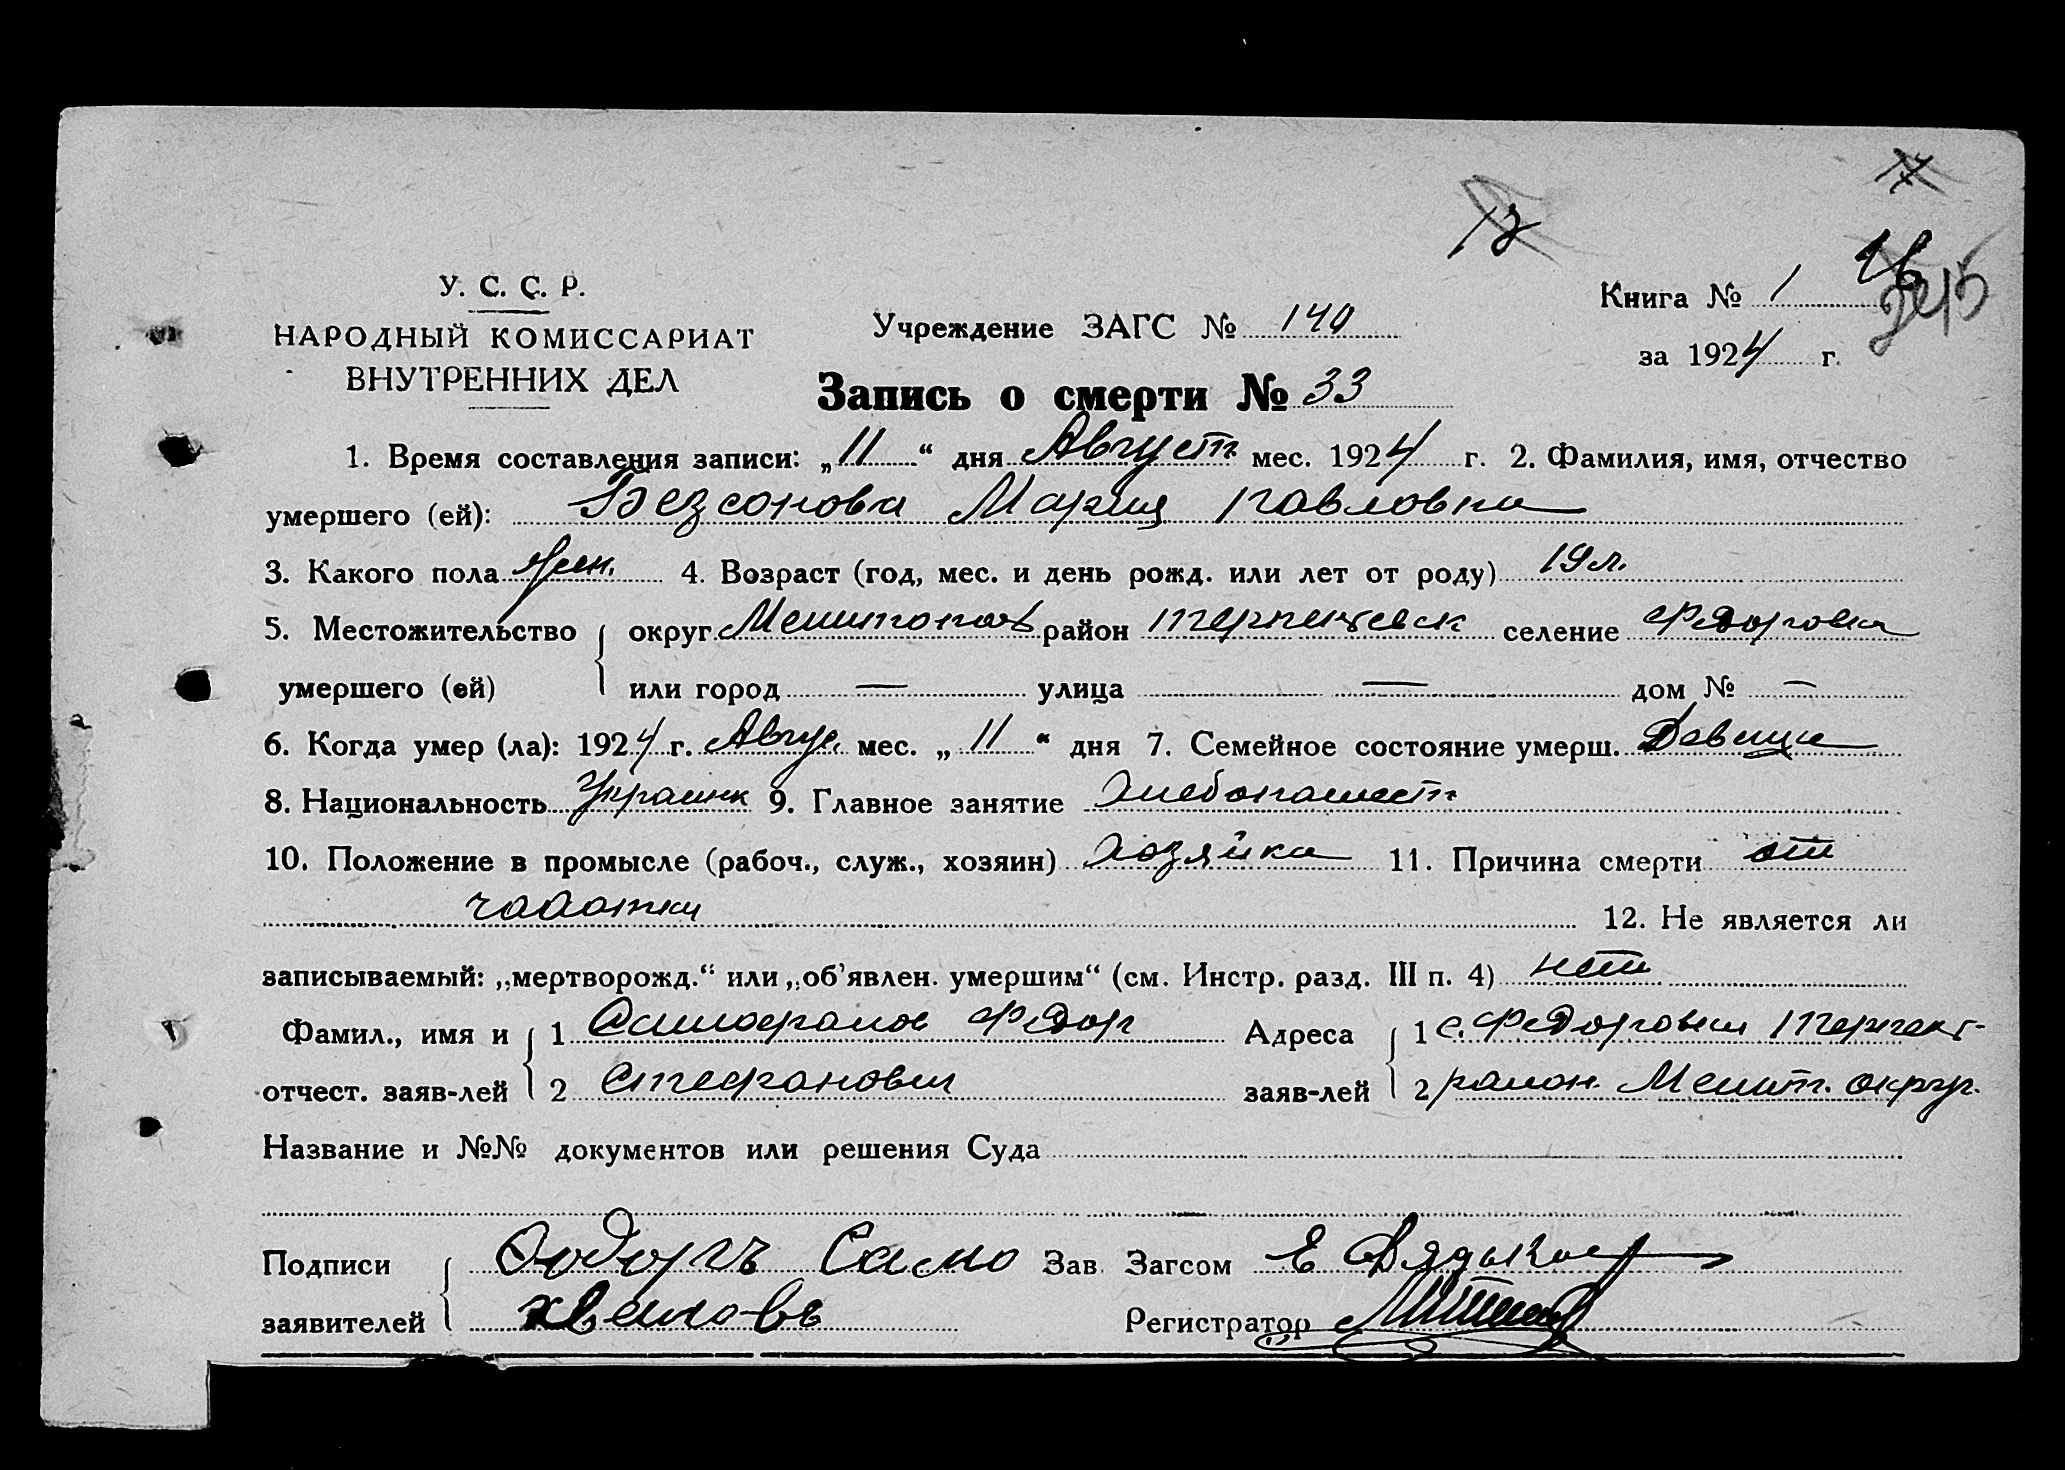 17
12
16
245
У. С. С. Р.
НАРОДНЫЙ КОМИССАРИАТ
ВНУТРЕННИХ ДЕЛ
Учреждение ЗАГС № 140
Книга № 1
за 1924 г.
Запись о смерти № 33
1. Время составления записи: „11“ дня Август мес. 1924 г. 2. Фамилия, имя, отчество
умершего (ей): Безсонова Мария Павловна
3. Какого пола жен. 4. Возраст (год, мес. и день рожд. или лет от роду) 19 л.
5. Местожительство округ Мелитополь район Терпеньевск селение Федоровка
умершего (ей) или город — улица — дом № —
6. Когда умер (ла): 1924 г. Авгус. мес. „11“ дня 7. Семейное состояние умерш. Девица
8. Национальность Украинк 9. Главное занятие Хлебопашест
10. Положение в промысле (рабоч., служ., хозяин) хозяйка 11. Причина смерти от
чахотки 12. Не является ли
записываемый: „мертворожд.“ или „об'явлен. умершим“ (см. Инстр. разд. III п. 4) нет
Фамил., имя и 1 Федор Адреса 1 с. Федоровка
отчест. заяв-лей 2 Стефанович заяв-лей 2 район. Мелит. округ.
Название и №№ документов или решения Суда
Подписи Само Зав. Загсом Е
заявителей хваловъ Регистратор